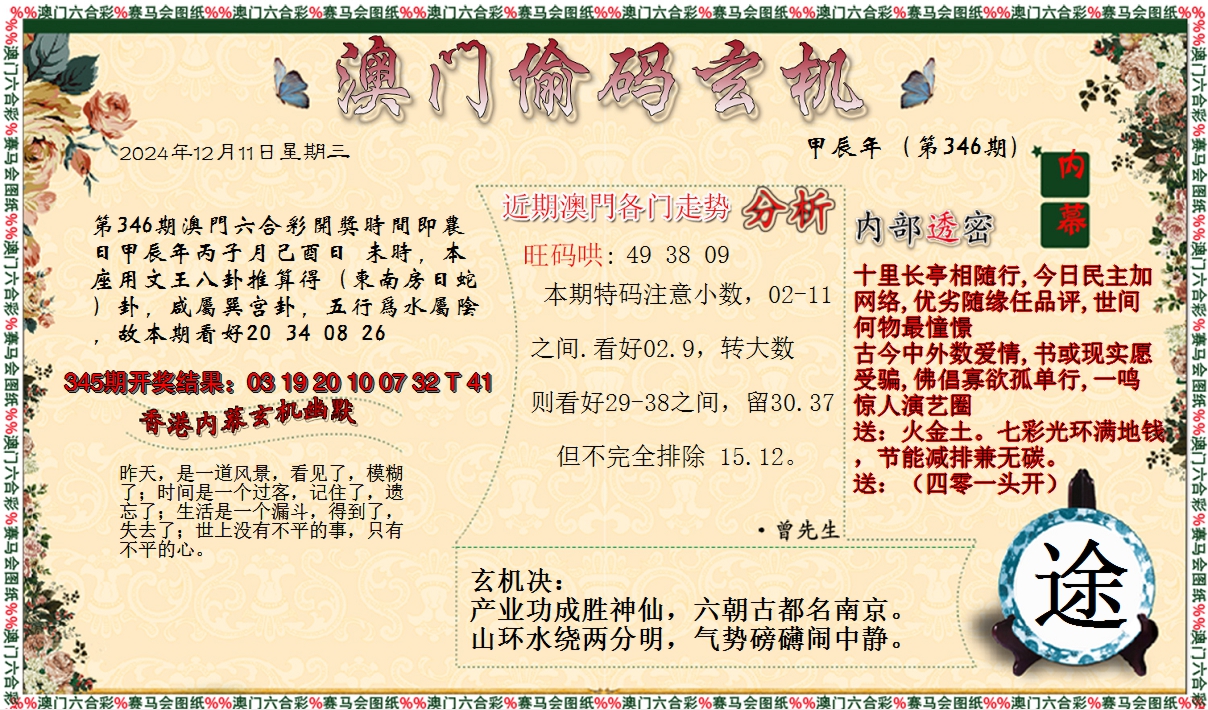 %%澳门六合彩%赛马会图纸%%澳门六合彩%赛马会图纸%%澳门六合彩%赛马会图纸%%澳门六合彩%赛马会图纸%%澳门六合彩%赛马会图纸%%澳门六合彩%赛马会图纸%%
澳门偷码玄机
2024年12月11日星期三
甲辰年（第346期）
内
幕
第346期澳門六合彩開獎時間即農
日甲辰年丙子月己酉日 未時，本
座用文王八卦推算得（東南房日蛇
）卦，咸屬巽宫卦，五行爲水屬陰
，故本期看好20 34 08 26
345期开奖结果：03 19 20 10 07 32 T 41
香港内幕玄机幽默
昨天，是一道风景，看见了，模糊
了；时间是一个过客，记住了，遗
忘了；生活是一个漏斗，得到了，
失去了；世上没有不平的事，只有
不平的心。
近期澳門各门走势 分析
旺码哄: 49 38 09
本期特码注意小数，02-11
之间.看好02.9，转大数
则看好29-38之间，留30.37
但不完全排除 15.12。
·曾先生
内部透密
十里长亭相随行,今日民主加
网络,优劣随缘任品评,世间
何物最憧憬
古今中外数爱情,书或现实愿
受骗,佛倡寡欲孤单行,一鸣
惊人演艺圈
送：火金土。七彩光环满地钱
，节能减排兼无碳。
送：（四零一头开）
玄机决：
产业功成胜神仙，六朝古都名南京。
山环水绕两分明，气势磅礴闹中静。
途
%%澳门六合彩%赛马会图纸%%澳门六合彩%赛马会图纸%%澳门六合彩%赛马会图纸%%澳门六合彩%赛马会图纸%%澳门六合彩%赛马会图纸%%澳门六合彩%赛马会图纸%%